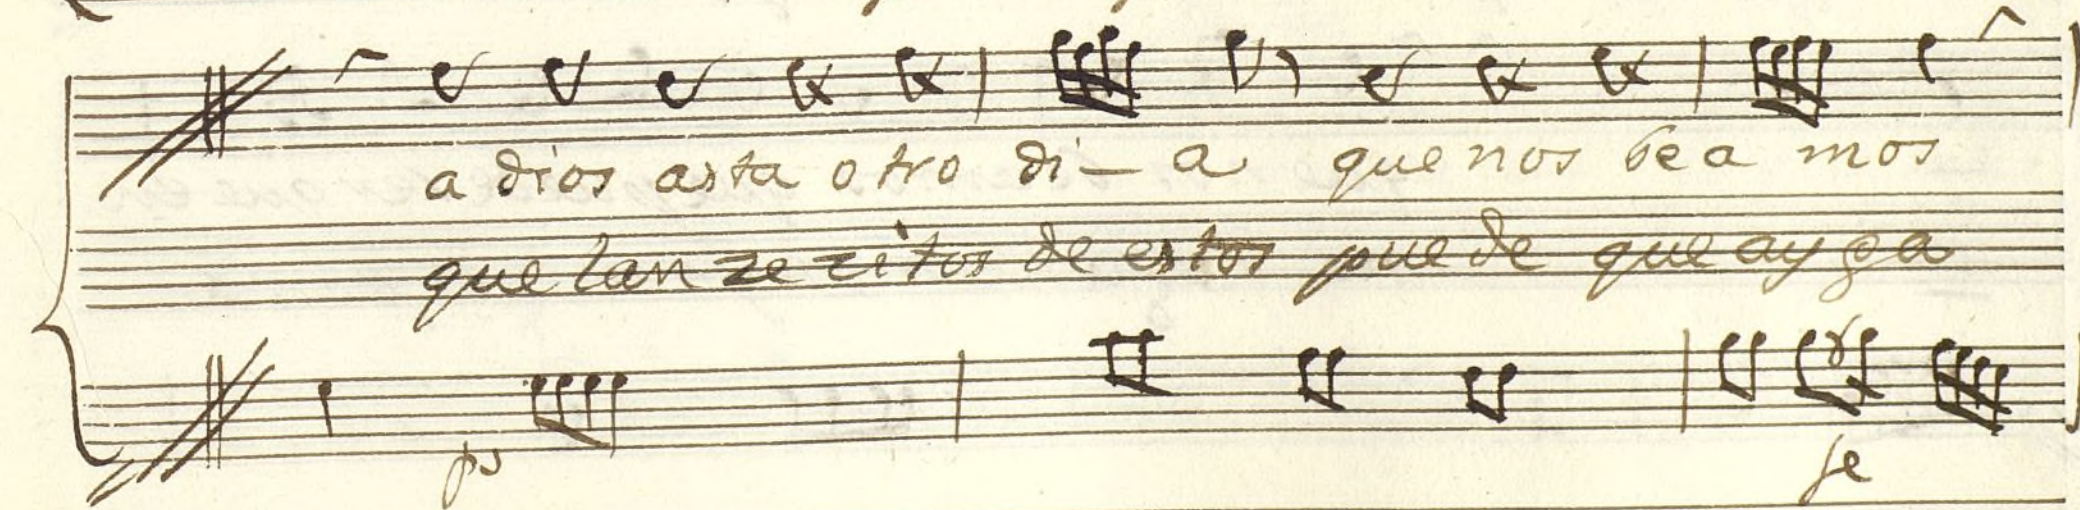 a dios asta otro di_a que nos bea mos
que lan ze zitos de estos puede que ayga
po
fe